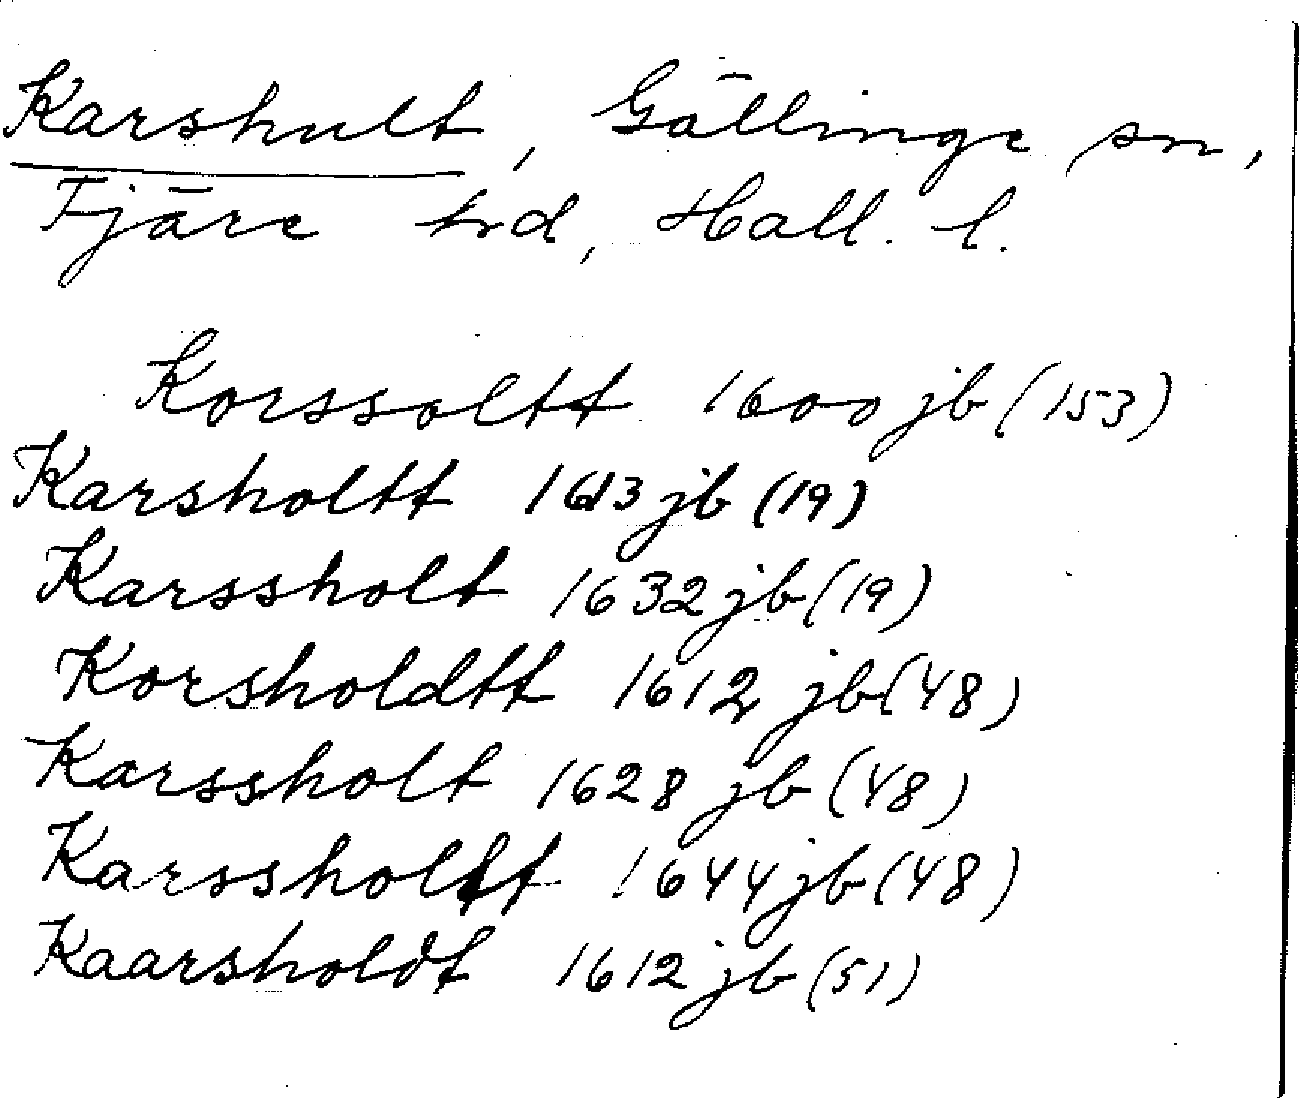 Karshult, Gällinge sn,
Fjäre hd, Hall. l.
Korssoltt 1600 jb (153)
Karsholtt 1613 jb (19)
Karssholt 1632 jb (19)
Korsholdtt 1612 jb (48)
Karssholt 1628 jb (48)
Karssholtt 1644 jb (48)
Kaarsholdt 1612 jb (51)